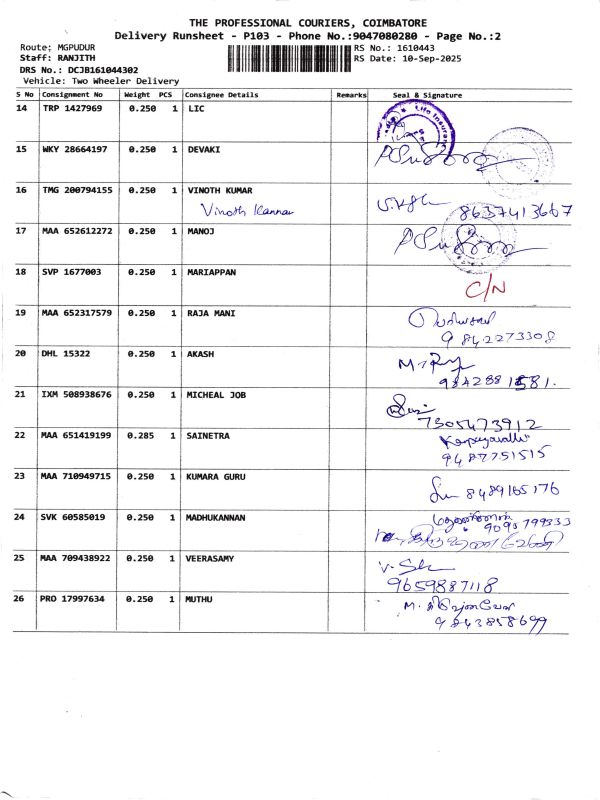 THE PROFESSIONAL COURIERS, COIMBATORE
Delivery Runsheet - P103 - Phone No.:9047080280 - Page No.:2
Route: MGPUDUR RS No.: 1610443
Staff: RANJITH RS Date: 10-Sep-2025
DRS No.: DCJB161044302
Vehicle: Two Wheeler Delivery
S No Consignment No Weight PCS Consignee Details Remarks Seal & Signature
14 TRP 1427969 0.250 1 LIC
Life Insura
15 WKY 28664197 0.250 1 DEVAKI
16 TMG 200794155 0.250 1 VINOTH KUMAR
Vinoth Kannan 8637413667
17 MAA 652612272 0.250 1 MANOJ
18 SVP 1677003 0.250 1 MARIAPPAN
C/N
19 MAA 652317579 0.250 1 RAJA MANI
9842273308
20 DHL 15322 0.250 1 AKASH
9842881581.
21 IXM 508938676 0.250 1 MICHEAL JOB
7305473912
22 MAA 651419199 0.285 1 SAINETRA
Karpagavalli
9487751515
23 MAA 710949715 0.250 1 KUMARA GURU
8489165176
24 SVK 60585019 0.250 1 MADHUKANNAN
9095799333
25 MAA 709438922 0.250 1 VEERASAMY
9659887118
26 PRO 17997634 0.250 1 MUTHU
9843858699